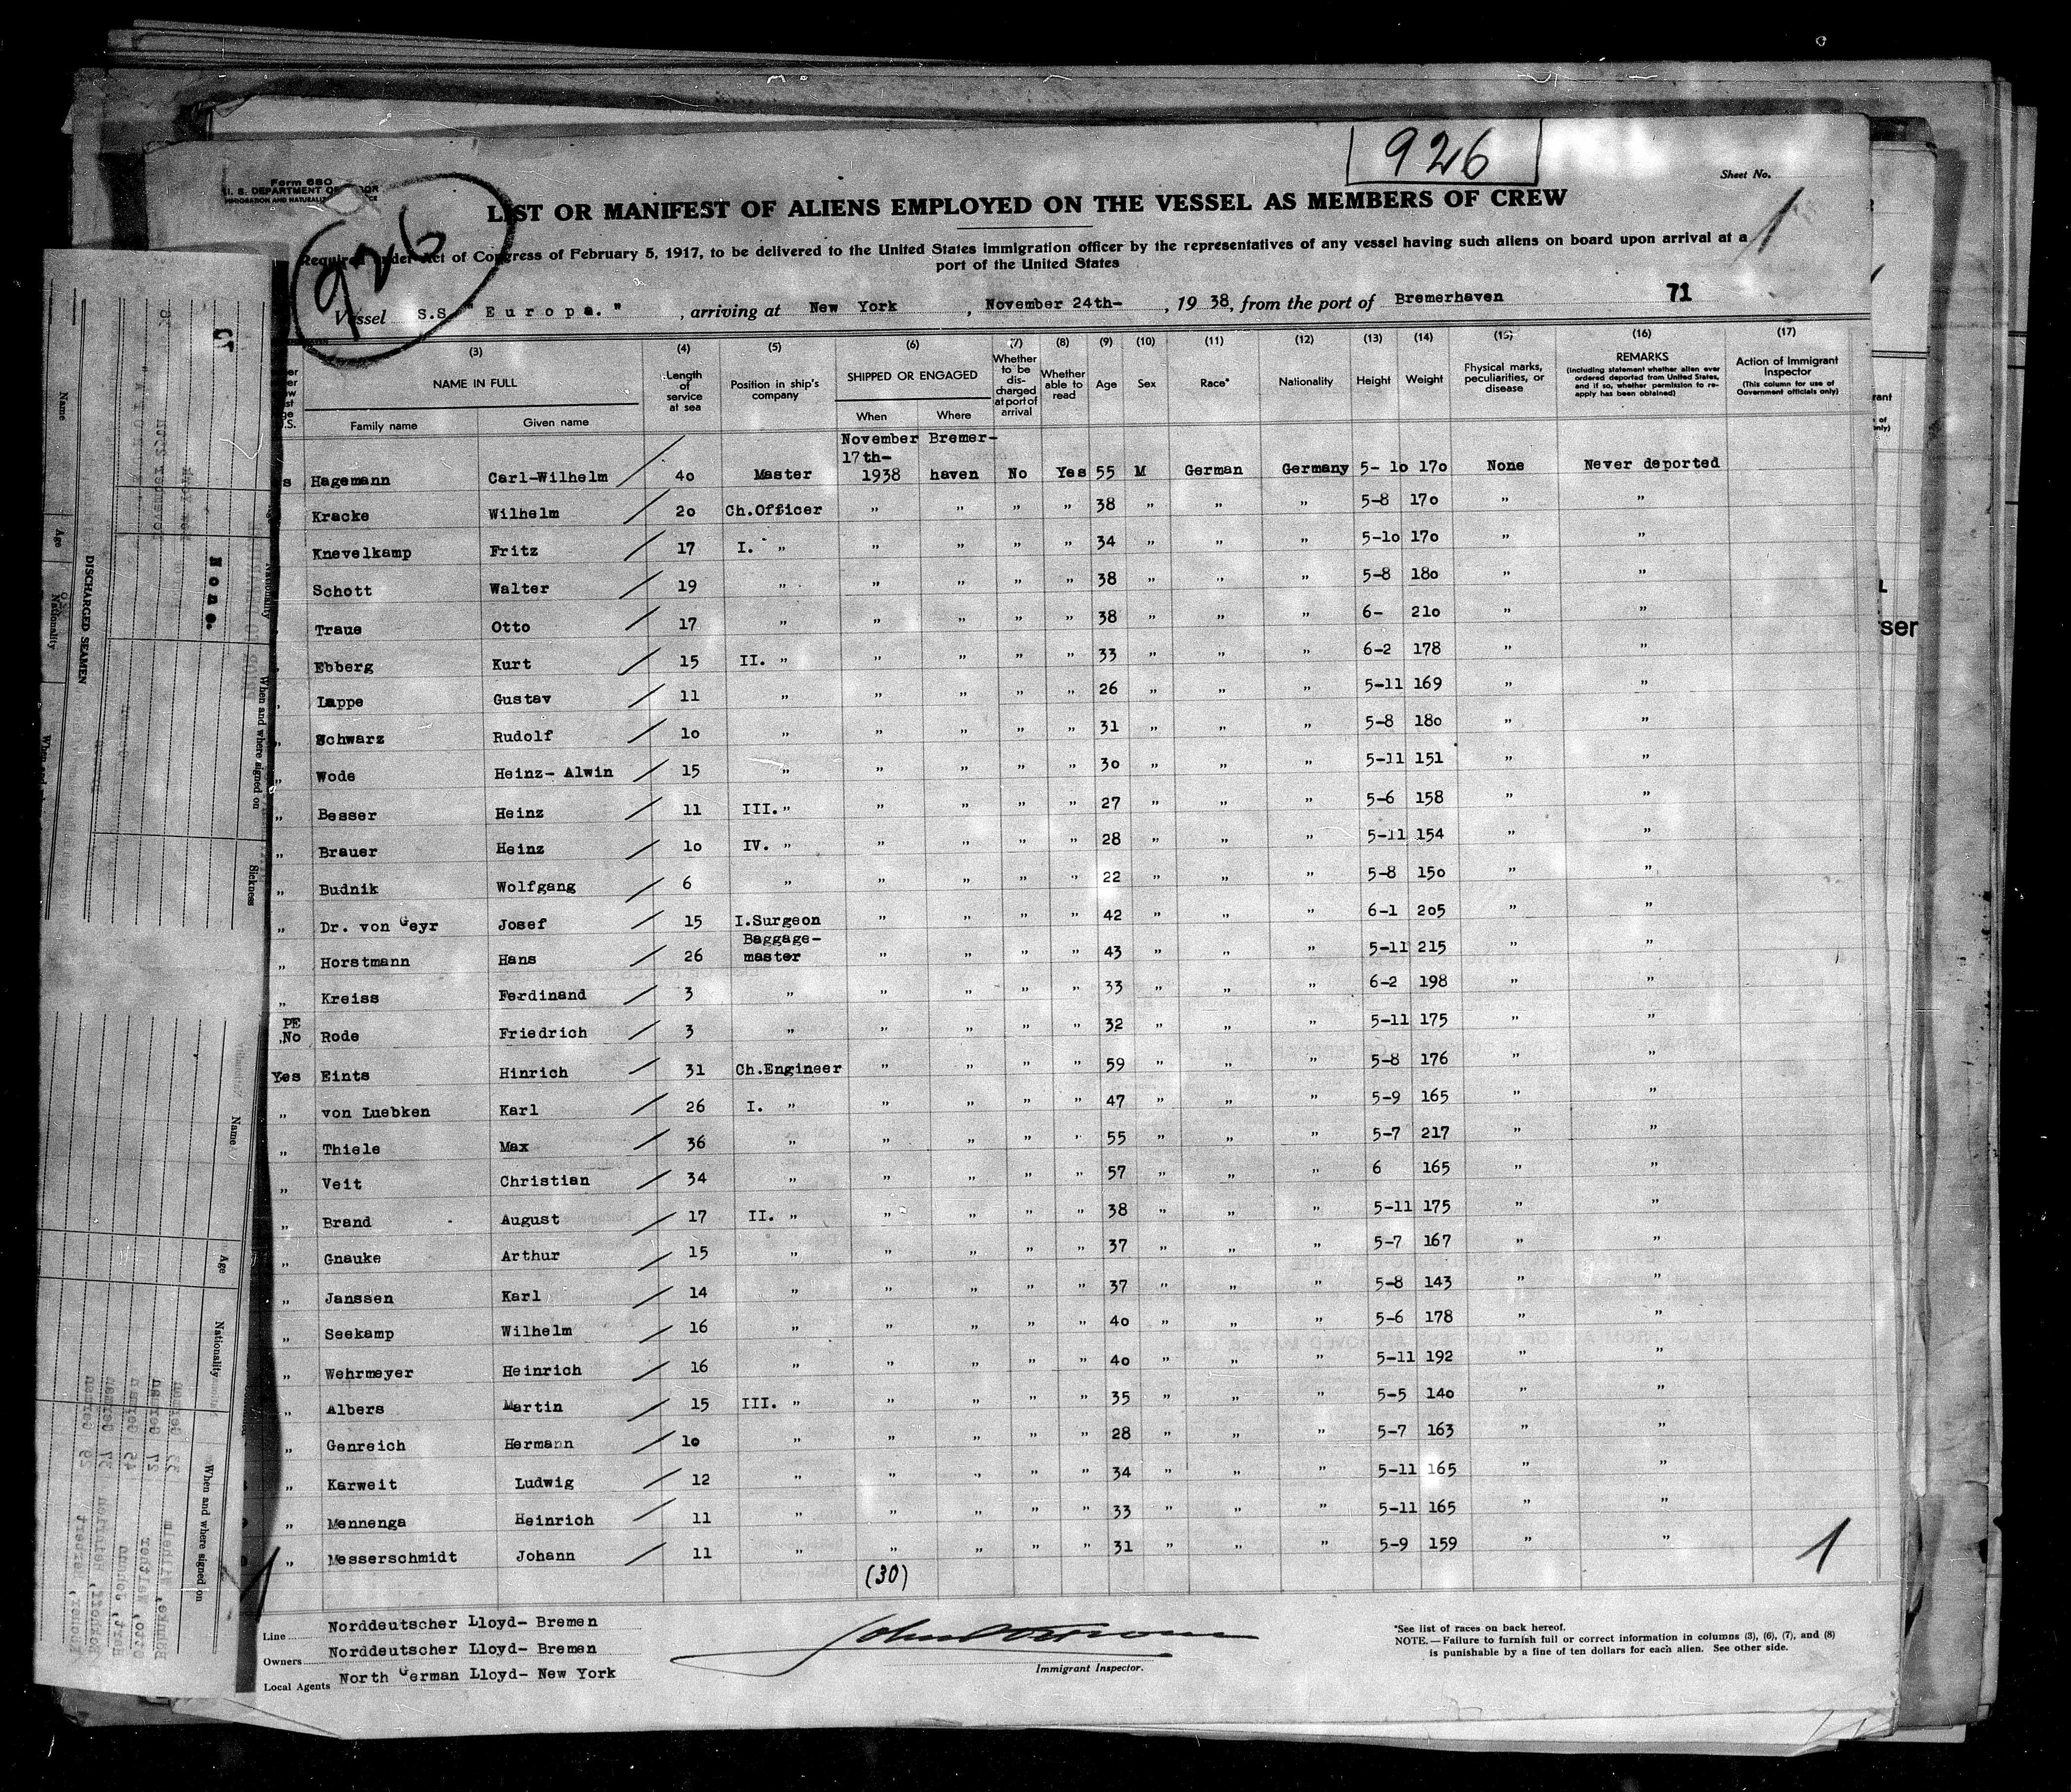 926
Sheet No.
Form 680
U. S. DEPARTMENT OF
926
LIST OR MANIFEST OF ALIENS EMPLOYED ON THE VESSEL AS MEMBERS OF CREW
1
Required under Act of Congress of February 5, 1917, to be delivered to the United States immigration officer by the representatives of any vessel having such aliens on board upon arrival at a
port of the United States
Vessel S.S. "Europa." , arriving at New York , November 24th- , 19 38, from the port of Bremerhaven 71
(3) (4) (5) (6) (7) (8) (9) (10) (11) (12) (13) (14) (15) (16) (17)
NAME IN FULL Family name Given name
Length of service at sea
Position in ship's company
SHIPPED OR ENGAGED When Where
Whether to be discharged at port of arrival
Whether able to read
Age Sex Race* Nationality Height Weight
Physical marks, peculiarities, or disease
REMARKS (Including statement whether alien ever ordered deported from United States, and if so, whether permission to re-apply has been obtained)
Action of Immigrant Inspector (This column for use of Government officials only)
November Bremer-
17th-
s Hagemann Carl-Wilhelm 40 Master 1938 haven No Yes 55 M German Germany 5-10 170 None Never deported
Kracke Wilhelm 20 Ch.Officer " " " " 38 " " " 5-8 170 " "
Knevelkamp Fritz 17 I. " " " " " 34 " " " 5-10 170 " "
Schott Walter 19 " " " " " 38 " " " 5-8 180 " "
Traue Otto 17 " " " " " 38 " " " 6- 210 " "
Ebberg Kurt 15 II. " " " " " 33 " " " 6-2 178 " "
Lappe Gustav 11 " " " " " 26 " " " 5-11 169 " "
" Schwarz Rudolf 10 " " " " " 31 " " " 5-8 180 " "
" Wode Heinz- Alwin 15 " " " " " 30 " " " 5-11 151 " "
" Besser Heinz 11 III. " " " " " 27 " " " 5-6 158 " "
" Brauer Heinz 10 IV. " " " " " 28 " " " 5-11 154 " "
" Budnik Wolfgang 6 " " " " " 22 " " " 5-8 150 " "
" Dr. von Geyr Josef 15 I.Surgeon " " " " 42 " " " 6-1 205 " "
" Horstmann Hans 26 Baggage-master " " " " 43 " " " 5-11 215 " "
" Kreiss Ferdinand 3 " " " " " 33 " " " 6-2 198 " "
PE
No Rode Friedrich 3 " " " " " 32 " " " 5-11 175 " "
Yes Eints Hinrich 31 Ch.Engineer " " " " 59 " " " 5-8 176 " "
" von Luebken Karl 26 I. " " " " " 47 " " " 5-9 165 " "
" Thiele Max 36 " " " " " 55 " " " 5-7 217 " "
" Veit Christian 34 " " " " " 57 " " " 6 165 " "
" Brand August 17 II. " " " " " 38 " " " 5-11 175 " "
" Gnauke Arthur 15 " " " " " 37 " " " 5-7 167 " "
" Janssen Karl 14 " " " " " 37 " " " 5-8 143 " "
" Seekamp Wilhelm 16 " " " " " 40 " " " 5-6 178 " "
" Wehrmeyer Heinrich 16 " " " " " 40 " " " 5-11 192 " "
" Albers Martin 15 III. " " " " " 35 " " " 5-5 140 " "
" Genreich Hermann 10 " " " " " 28 " " " 5-7 163 " "
" Karweit Ludwig 12 " " " " " 34 " " " 5-11 165 " "
" Mennenga Heinrich 11 " " " " " 33 " " " 5-11 165 " "
" Messerschmidt Johann 11 " " " " " 31 " " " 5-9 159 " "
(30)
1
Line Norddeutscher Lloyd- Bremen
Owners Norddeutscher Lloyd- Bremen
Local Agents North German Lloyd- New York
Immigrant Inspector.
*See list of races on back hereof.
NOTE.—Failure to furnish full or correct information in columns (3), (6), (7), and (8)
is punishable by a fine of ten dollars for each alien. See other side.
Name
Age
Nationality
DISCHARGED SEAMEN
None.
When and where signed on
Sickness
Name
Age
Nationality
When and where signed on